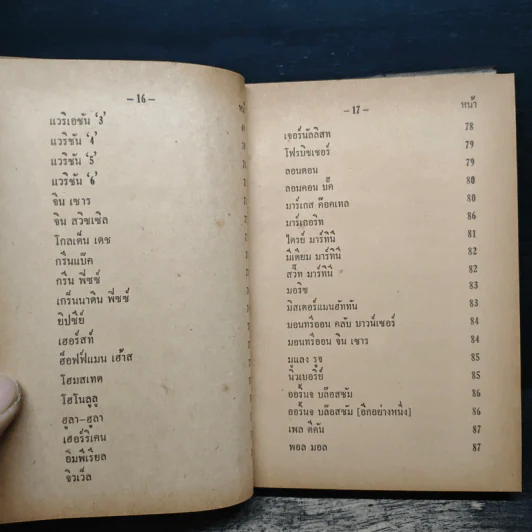 – 16 –
แวริเอชัน ‘3’
แวริชัน ‘4’
แวริชัน ‘5’
แวริชัน ‘6’
จิน เซาร
จิน สวิซเซิล
โกลเด็น เดซ
กรีนแบ๊ค
กรีน พี่ซซ์
เกร็นนาดิน พี่ซซ์
ยิปซีย์
เฮอร์สท์
ฮ็อฟฟ์แมน เฮ้าส
โฮมสเทด
โฮโนลูลู
ฮูลา-ฮูลา
เฮอร์ริเคน
อิมพีเรียล
จิวเว็ล
– 17 –
หน้า
เจอร์นัลลิสท 78
โฟรบิชเชอร์ 79
ลอนดอน 79
ลอมคอน บั๊ค 80
มาร์เกส ค๊อคเทล 80
มาร์เกอริท 86
ไดรย์ มาร์ทินี่ 81
มีเดียม มาร์ทินี่ 82
สวีท มาร์ทินี่ 82
มอริซ 83
มิสเตอร์แมนฮัททัน 83
มอนทรีออน คลับ บาวน์เซอร์ 84
มอนทรีออน จิน เซาร 84
มูแลง รูจ 85
นิวเบอรีย์ 85
ออร์นจ บล๊อสซัม 86
ออร์นจ บล๊อสซัม [อีกอย่างหนึ่ง] 86
เพล ดีคัน 87
พอล มอล 87